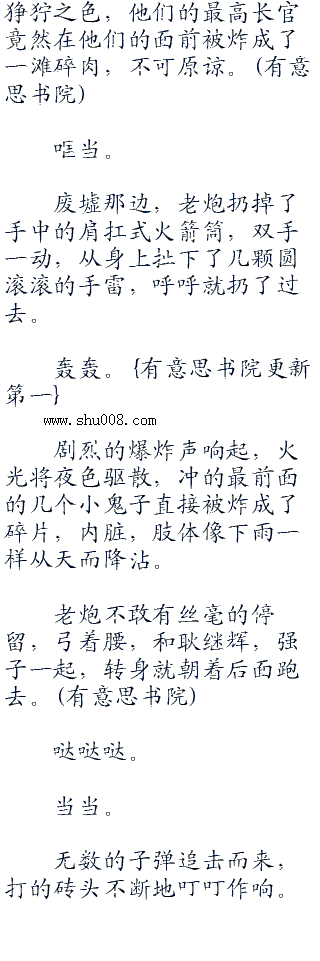 狰狞之色，他们的最高长官
竟然在他们的面前被炸成了
一滩碎肉，不可原谅。(有意
思书院)
哐当。
废墟那边，老炮扔掉了
手中的肩扛式火箭筒，双手
一动，从身上扯下了几颗圆
滚滚的手雷，呼呼就扔了过
去。
轰轰。{有意思书院更新
第一}
www.shu008.com
剧烈的爆炸声响起，火
光将夜色驱散，冲的最前面
的几个小鬼子直接被炸成了
碎片，内脏，肢体像下雨一
样从天而降沾。
老炮不敢有丝毫的停
留，弓着腰，和耿继辉，强
子一起，转身就朝着后面跑
去。(有意思书院)
哒哒哒。
当当。
无数的子弹追击而来，
打的砖头不断地叮叮作响。